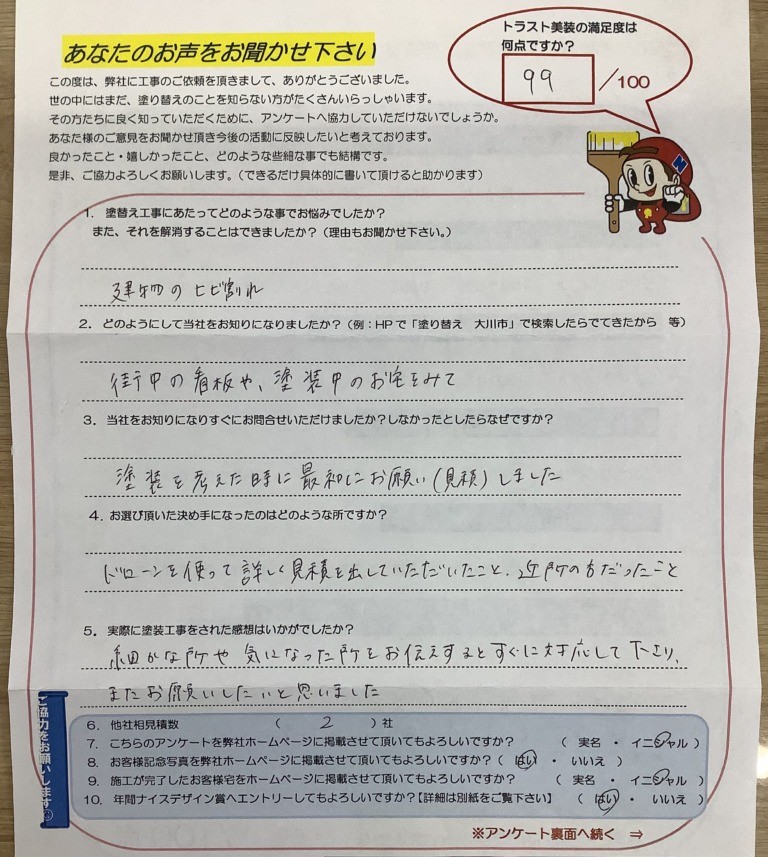 あなたのお声をお聞かせ下さい
トラスト美装の満足度は
何点ですか？
99 ／100
この度は、弊社に工事のご依頼を頂きまして、ありがとうございました。
世の中にはまだ、塗り替えのことを知らない方がたくさんいらっしゃいます。
その方たちに良く知っていただくために、アンケートへ協力していただけないでしょうか。
あなた様のご意見をお聞かせ頂き今後の活動に反映したいと考えております。
良かったこと・嬉しかったこと、どのような些細な事でも結構です。
是非、ご協力よろしくお願いします。（できるだけ具体的に書いて頂けると助かります）
1. 塗替え工事にあたってどのような事でお悩みでしたか？
また、それを解消することはできましたか？（理由もお聞かせ下さい。）
建物のヒビ割れ
2. どのようにして当社をお知りになりましたか？（例：HPで「塗り替え　大川市」で検索したらでてきたから　等）
街中の看板や、塗装中のお宅をみて
3. 当社をお知りになりすぐにお問合せいただけましたか？しなかったとしたらなぜですか？
塗装を考えた時に最初にお願い（見積）しました
4. お選び頂いた決め手になったのはどのような所ですか？
ドローンを使って詳しく見積を出していただいたこと、近所の方だったこと
5. 実際に塗装工事をされた感想はいかがでしたか？
細かな所や気になった所をお伝えするとすぐに対応して下さり、
またお願いしたいと思いました
ご協力をお願いします
6. 他社相見積数　（　2　）社
7. こちらのアンケートを弊社ホームページに掲載させて頂いてもよろしいですか？　（　実名　・　イニシャル　）
8. お客様記念写真を弊社ホームページに掲載させて頂いてもよろしいですか？（　はい　・　いいえ　）
9. 施工が完了したお客様宅をホームページに掲載させて頂いてもよろしいですか？　（　実名　・　イニシャル　）
10. 年間ナイスデザイン賞へエントリーしてもよろしいですか？【詳細は別紙をご覧下さい】　（　はい　・　いいえ　）
※アンケート裏面へ続く　⇒